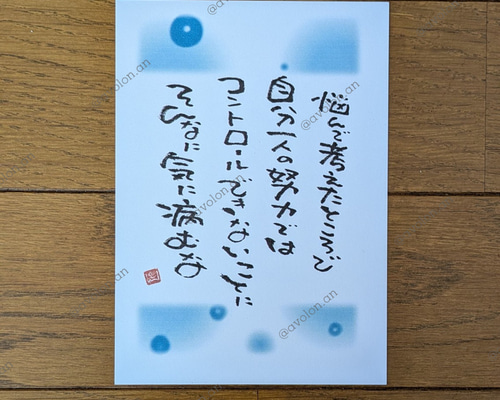 悩んで考えたところで
自分一人の努力では
コントロールできないことに
そんなに気に病むな
@avolon.an
@avolon.an
@avolon.an
@avolon.an